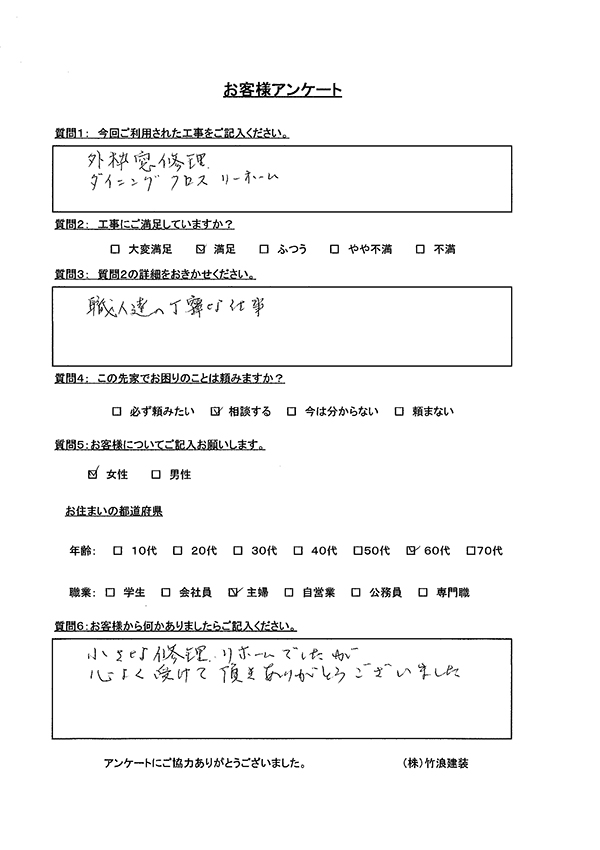 お客様アンケート
質問1: 今回ご利用された工事をご記入ください。
外枠窓修理
ダイニング クロス リーホーム
質問2: 工事にご満足していますか?
□ 大変満足 ☑ 満足 □ ふつう □ やや不満 □ 不満
質問3: 質問2の詳細をおきかせください。
職人達の丁寧な仕事
質問4: この先家でお困りのことは頼みますか?
□ 必ず頼みたい ☑ 相談する □ 今は分からない □ 頼まない
質問5:お客様についてご記入お願いします。
☑ 女性 □ 男性
お住まいの都道府県
年齢: □ 10代 □ 20代 □ 30代 □ 40代 □50代 ☑ 60代 □70代
職業: □ 学生 □ 会社員 ☑ 主婦 □ 自営業 □ 公務員 □ 専門職
質問6:お客様から何かありましたらご記入ください。
小さな修理.リホームでしたが
心よく受けて頂きありがとうございました
アンケートにご協力ありがとうございました。 (株)竹浪建装